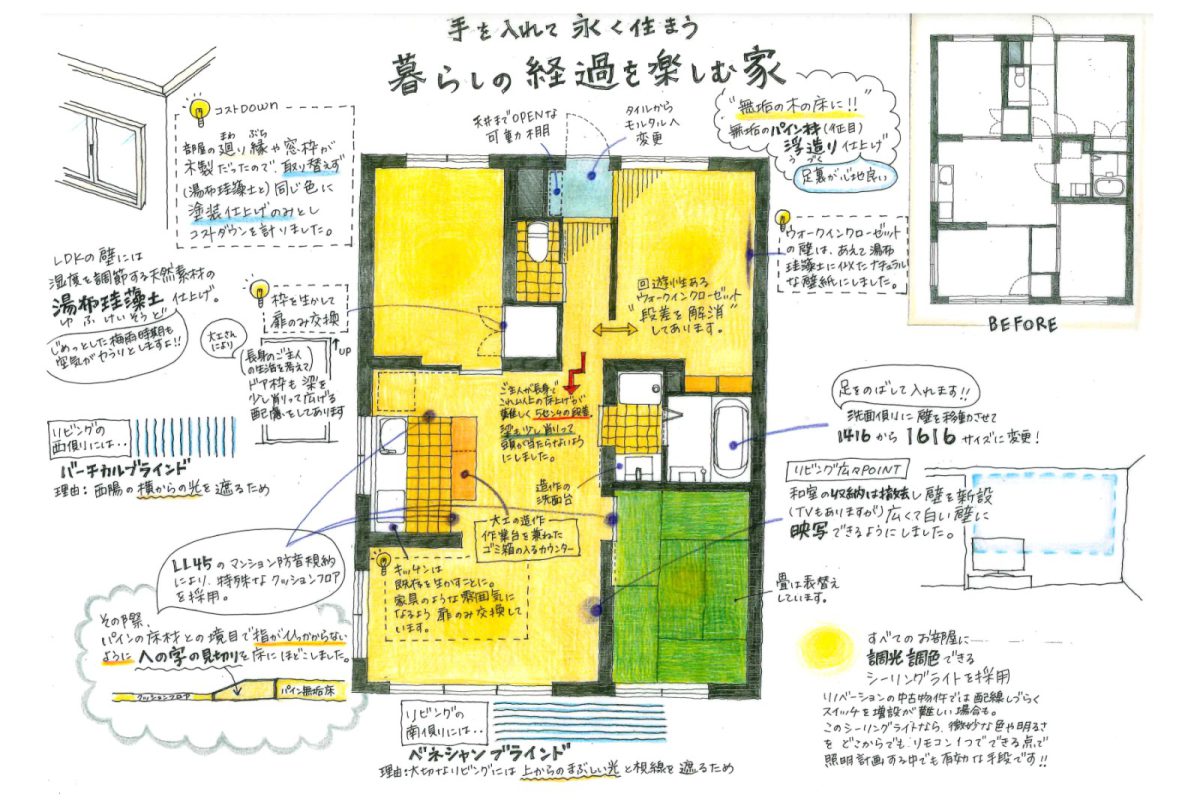 手を入れて 永く住まう
暮らしの 経過を楽しむ家
コストDOWN
まわ ぶち
部屋の廻り縁や窓枠が
木製だったので、取り替えず
(湯布珪藻土と)同じ色に
塗装仕上げのみとし
コストダウンを計りました。
天井までOPENな
可動棚
タイルから
モルタルへ
変更
"無垢の木の床に!!"
無垢のパイン材(柾目)
浮造り仕上げ
う づく
足裏が心地良い
ウォークインクローゼット
の壁は、あえて湯布
珪藻土に似たナチュラル
な壁紙にしました。
BEFORE
LDKの壁には
湿度を調節する天然素材の
湯布珪藻土 仕上げ。
ゆ ふ けい そう ど
じめっとした梅雨時期も
空気がカラリとしますよ!!
枠を生かして
扉のみ交換
大工さん
により
UP
(長身のご主人
の生活を考えて)
ドア枠も梁を
少し削って広げる
配慮をしてあります
回遊性ある
ウォークインクローゼット
"段差を解消"
してあります。
ご主人が長身で
これ以上の床上げが
難しく5センチの段差。
梁も少し削って
頭が当たらないよう
にしました。
リビングの
西側には‥
バーチカルブラインド
理由:西陽の横からの光を遮るため
足をのばして入れます!!
洗面側に壁を移動させて
1416から1616サイズに変更!
リビング広々POINT
和室の収納は撤去し壁を新設
(TVもありますが)広くて白い壁に
映写できるようにしました。
造作の
洗面台
大工の造作
作業台を兼ねた
ゴミ箱の入るカウンター
LL45のマンション防音規約
により、特殊なクッションフロア
を採用。
キッチンは
既存を生かすことに。
家具のような雰囲気に
なるよう扉のみ交換して
います。
畳は表替え
しています。
その際、
パインの床材との境目で指がひっかからない
ように への字の見切りを床にほどこしました。
クッションフロア
パイン無垢床
すべてのお部屋に
調光調色できる
シーリングライトを採用
リノベーションの中古物件では配線しづらく
スイッチを増設が難しい場合も。
このシーリングライトなら、微妙な色や明るさ
を どこからでもリモコン1つでできる点で
照明計画する中でも有効な手段です!!
リビングの
南側には‥
ベネシャンブラインド
理由:大切なリビングには上からのまぶしい光と視線を遮るため